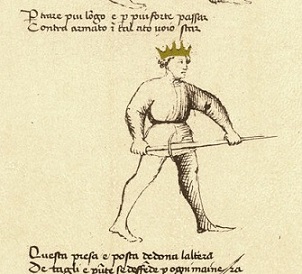 P trare piu lõgo e p piu forte passar
Contra armato ĩ tal ato voio star
Questa presa e posta de dona laltera
De tagli e pũte se deffẽde p ogni mainera